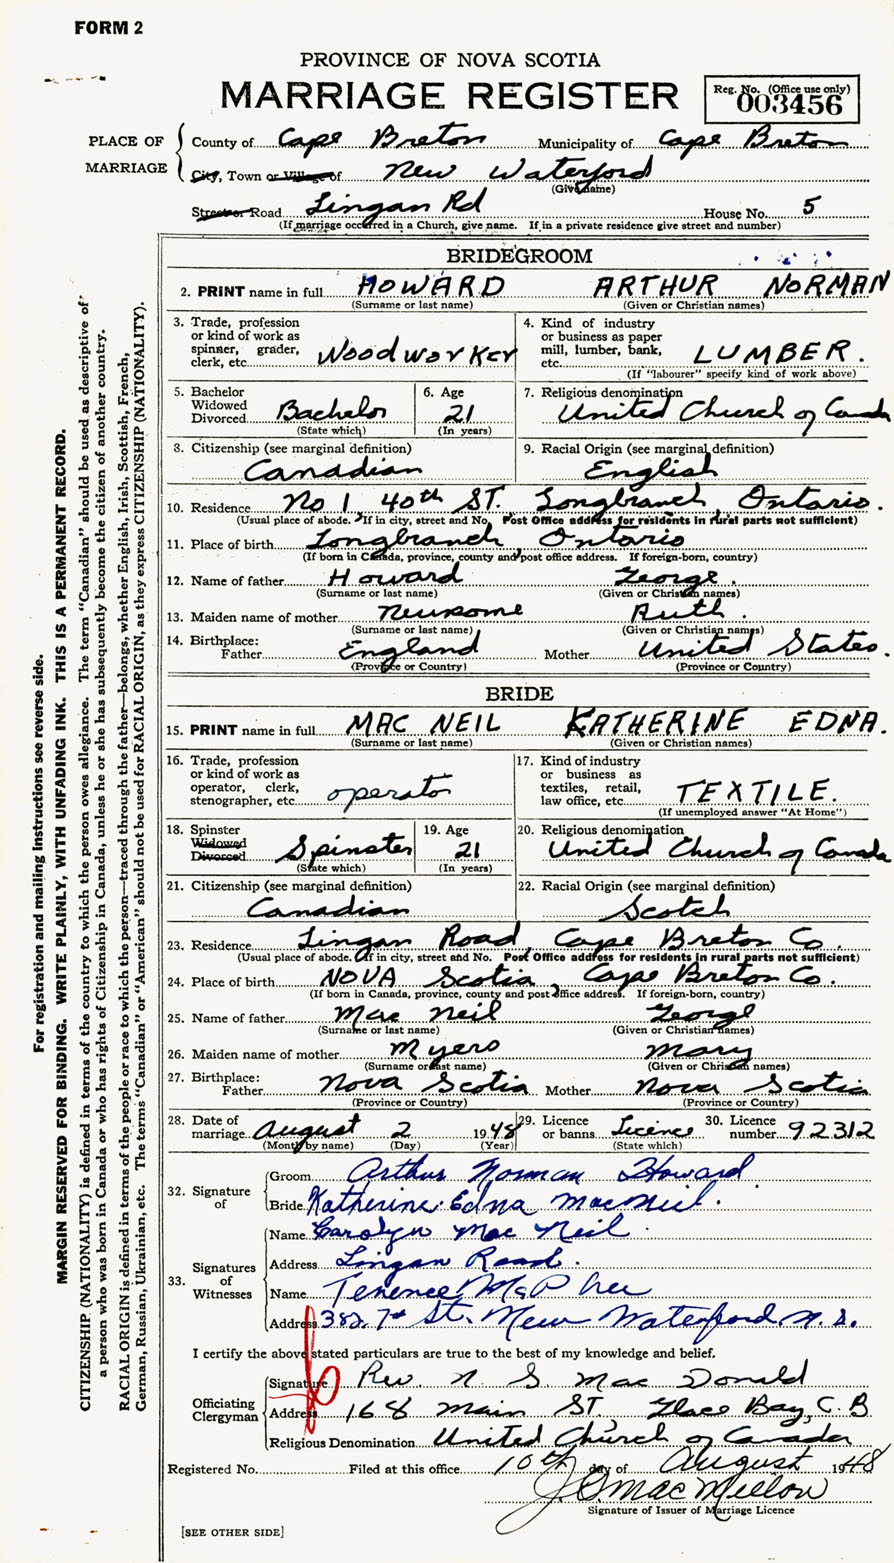 FORM 2
PROVINCE OF NOVA SCOTIA
MARRIAGE REGISTER
Reg. No. (Office use only)
003456
PLACE OF MARRIAGE
County of Cape Breton Municipality of Cape Breton
City, Town or Village of New Waterford
(Give name)
Street or Road Lingan Rd House No. 5
(If marriage occurred in a Church, give name. If in a private residence give street and number)
BRIDEGROOM
2. PRINT name in full HOWARD ARTHUR NORMAN
(Surname or last name) (Given or Christian names)
3. Trade, profession or kind of work as spinner, grader, clerk, etc. Woodworker
4. Kind of industry or business as paper mill, lumber, bank, etc. LUMBER.
(If "labourer" specify kind of work above)
5. Bachelor Widowed Divorced Bachelor
(State which)
6. Age 21
(In years)
7. Religious denomination United Church of Canada
8. Citizenship (see marginal definition) Canadian
9. Racial Origin (see marginal definition) English
10. Residence No 1, 40th ST. Longbranch, Ontario.
(Usual place of abode. If in city, street and No. Post Office address for residents in rural parts not sufficient)
11. Place of birth Longbranch Ontario
(If born in Canada, province, county and post office address. If foreign-born, country)
12. Name of father Howard George.
(Surname or last name) (Given or Christian names)
13. Maiden name of mother Newsome Ruth.
(Surname or last name) (Given or Christian names)
14. Birthplace: Father England Mother United States.
(Province or Country) (Province or Country)
BRIDE
15. PRINT name in full MAC NEIL KATHERINE EDNA.
(Surname or last name) (Given or Christian names)
16. Trade, profession or kind of work as operator, clerk, stenographer, etc. operator
17. Kind of industry or business as textiles, retail, law office, etc. TEXTILE.
(If unemployed answer "At Home")
18. Spinster Widowed Divorced Spinster
(State which)
19. Age 21
(In years)
20. Religious denomination United Church of Canada
21. Citizenship (see marginal definition) Canadian
22. Racial Origin (see marginal definition) Scotch
23. Residence Lingan Road, Cape Breton Co.
(Usual place of abode. If in city, street and No. Post Office address for residents in rural parts not sufficient)
24. Place of birth NOVA Scotia, Cape Breton Co.
(If born in Canada, province, county and post office address. If foreign-born, country)
25. Name of father Mac Neil George
(Surname or last name) (Given or Christian names)
26. Maiden name of mother Myers Mary
(Surname or last name) (Given or Christian names)
27. Birthplace: Father Nova Scotia Mother Nova Scotia
(Province or Country) (Province or Country)
28. Date of marriage August 2 1948
(Month by name) (Day) (Year)
29. Licence or banns Licence
(State which)
30. Licence number 92312
32. Signature of
Groom Arthur Norman Howard
Bride Katherine Edna MacNeil.
33. Signatures of Witnesses
Name Carolyn Mac Neil.
Address Lingan Road.
Name Terence McPhee
Address 382 7th St. New Waterford N.S.
I certify the above stated particulars are true to the best of my knowledge and belief.
Officiating Clergyman
Signature Rev. N. S. Mac Donald
Address 168 Main ST, Glace Bay, C.B
Religious Denomination United Church of Canada
Registered No. Filed at this office 10th day of August 1948
J. S. MacMillan
Signature of Issuer of Marriage Licence
[SEE OTHER SIDE]
For registration and mailing instructions see reverse side.
MARGIN RESERVED FOR BINDING. WRITE PLAINLY, WITH UNFADING INK. THIS IS A PERMANENT RECORD.
CITIZENSHIP (NATIONALITY) is defined in terms of the country to which the person owes allegiance. The term "Canadian" should be used as descriptive of
a person who was born in Canada or who has rights of Citizenship in Canada, unless he or she has subsequently become the citizen of another country.
RACIAL ORIGIN is defined in terms of the people or race to which the person—traced through the father—belongs, whether English, Irish, Scottish, French,
German, Russian, Ukrainian, etc. The terms "Canadian" or "American" should not be used for RACIAL ORIGIN, as they express CITIZENSHIP (NATIONALITY).